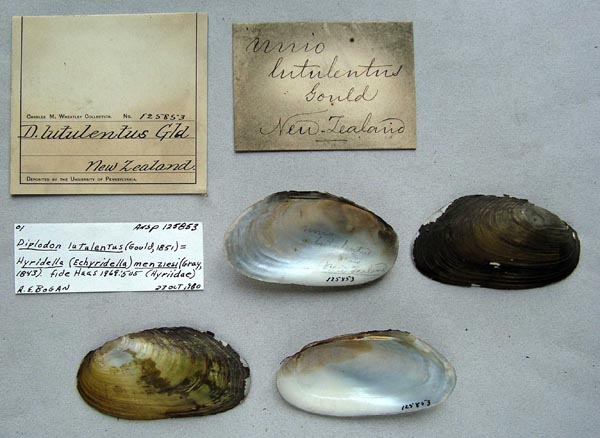 CHARLES M. WHEATLEY COLLECTION. No. 125853
D. lutulentus Gld
New Zealand.
DEPOSITED BY THE UNIVERSITY OF PENNSYLVANIA.
Unio
lutulentus
Gould
New-Zealand
01 ANSP 125853
Diplodon lutulentus (Gould, 1851) =
Hyridella (Echyridella) menziesi (Gray,
1843) fide Haas 1969:505 (Hyriidae)
A. E. BOGAN 27 OCT, 1980
lutulentus
New Zealand
125853
125853